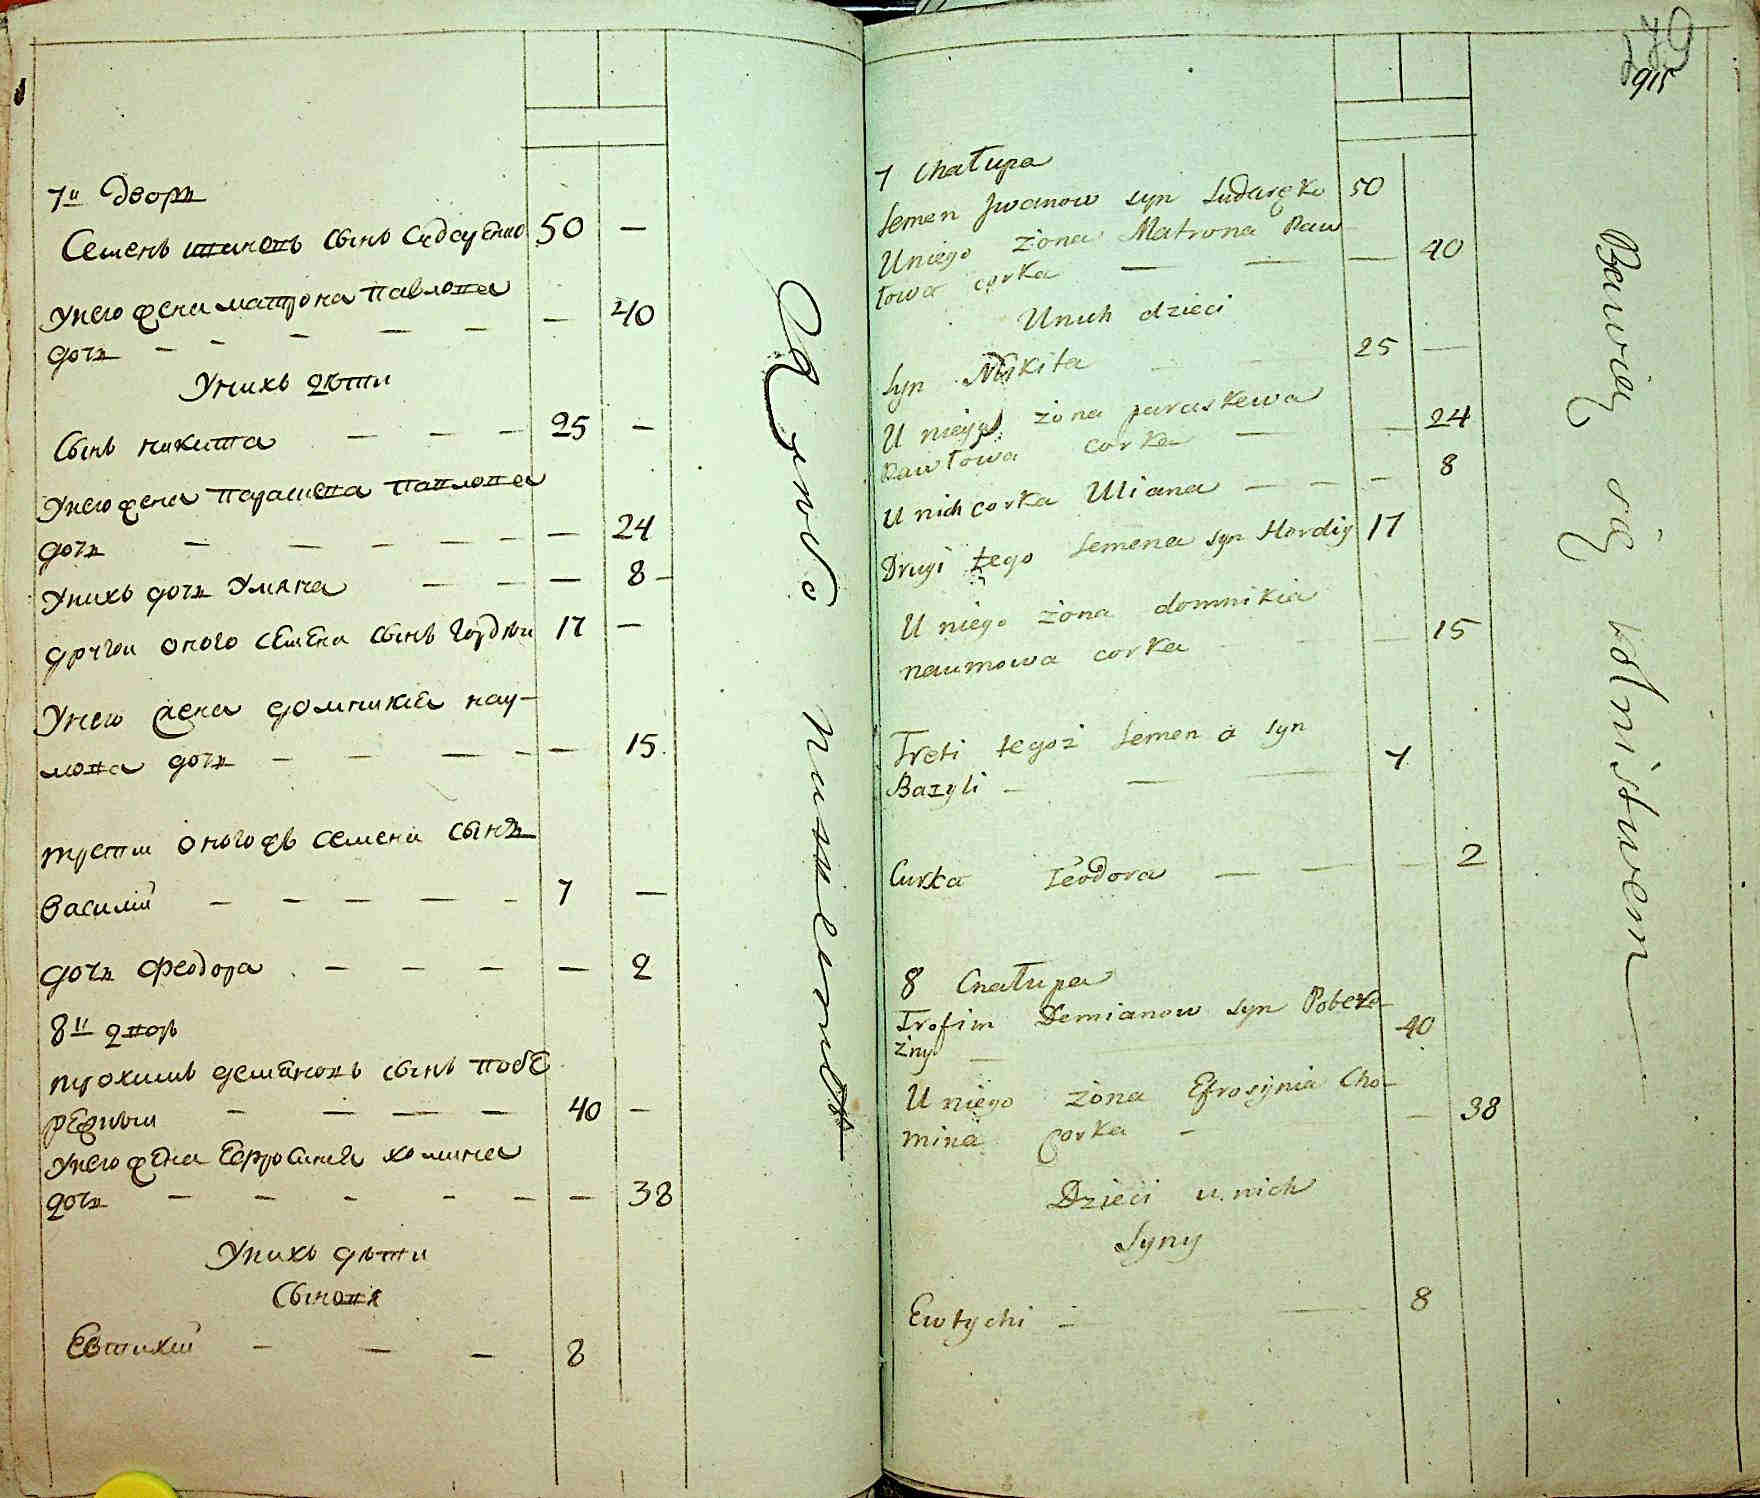 7й дворъ
Семенъ ивановъ сынъ 50 —
У него жена матрона павлова
дочь — — — — — — 40
У нихъ дѣти
Сынъ никита — — — 25 —
У него жена параскева павлова
дочь — — — — — — 24
У нихъ дочь Уляна — — — 8 —
другои оного семена сынъ Гордѣи 17 —
У него жена домникия нау-
мова дочь — — — — — 15
третии оного жъ семена сынъ
Василии — — — — — 7 —
дочь Феодора — — — — 2
8й дворъ
трохимъ демяновъ сынъ побе
режныи — — — — 40 —
У него жена Ефросиния хомина
дочь — — — — — — 38
У нихъ дѣти
Сыновя
Евтихии — — — 8
279
915
7 Chałupa
Semen Jwanow syn 50
U niego żona Matrona Paw
łowa corka — — — 40
U nich dzieci
Syn Mykita 25 —
U niego żona paraskewa
Pawłowa corka — — 24
U nich corka Uliana — — — 8
Drugi tego Semena syn Hordiy 17
U niego żona domnikia
naumowa corka — 15
Treti tegoż Semena syn
Bazyli — — — 7
Curka Teodora — — — 2
8 Chałupa
Trofim Demianow syn Pobere
żny — 40
U niego żona Efrosynia Cho-
mina corka — — 38
Dzieci u nich
Syny
Ewtychi — — 8
Bawią się rolnistwem